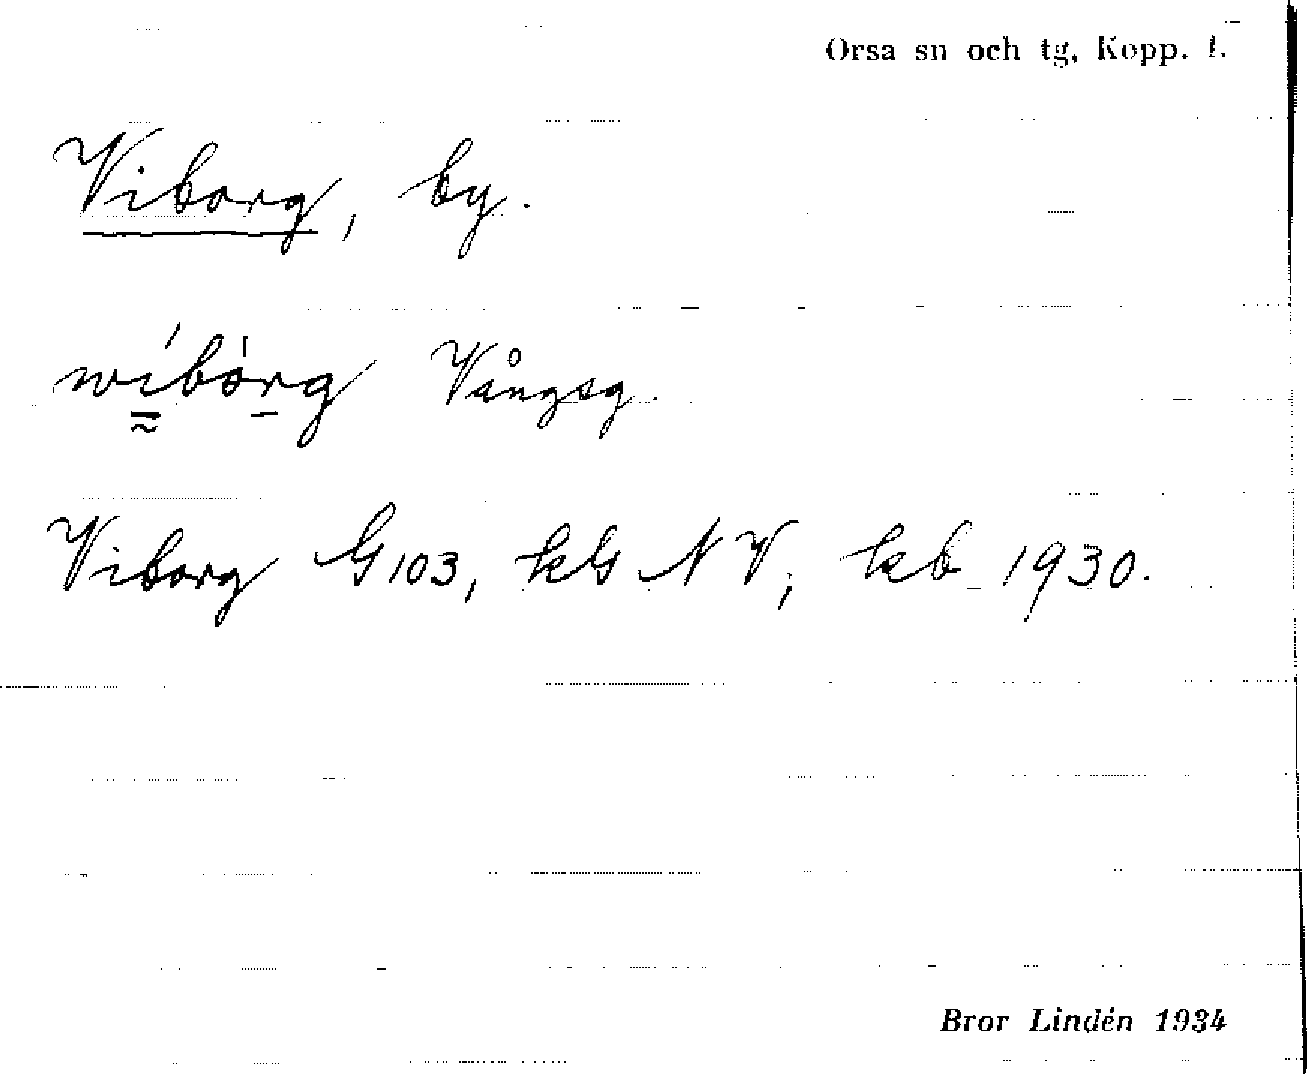 Orsa sn och tg, Kopp. l.
Viborg, by.
wíbórg Vångsg.
Viborg G103, kG NV, kb 1930.
Bror Lindén 1934